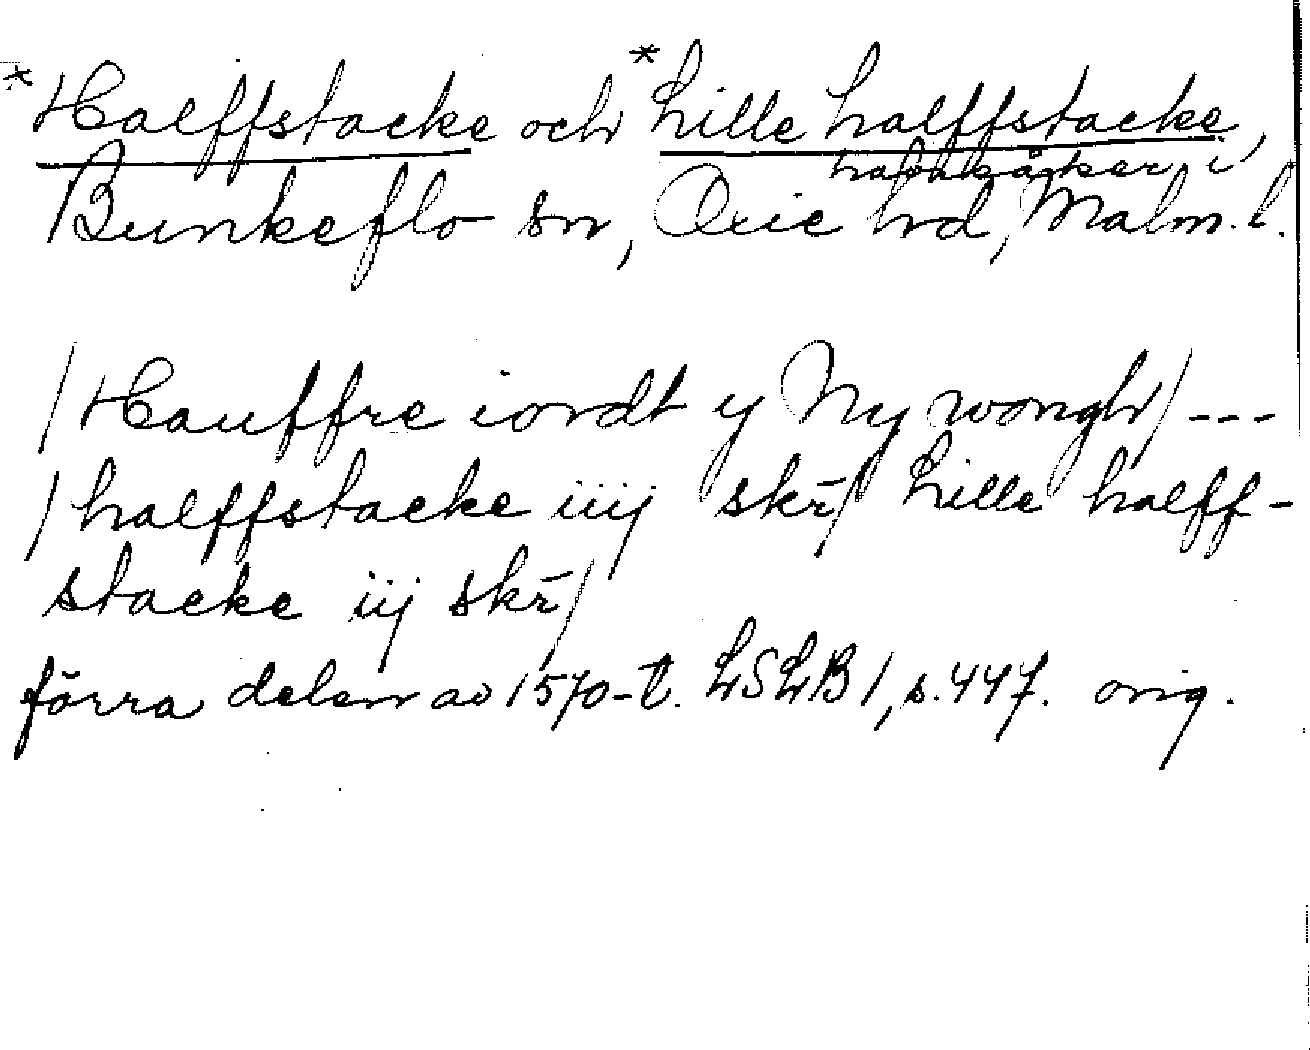 *Halffstacke och *Lille halffstacke,
havreåker i
Bunkeflo sn, Oxie hd, Malm. l.
/Hauffre iordt y Ny wongh/ ---
/halffstacke iiij skr̄/ Lille halff-
stacke iij skr̄/
förra delen av 1570-t. LSLB 1, s. 447. orig.